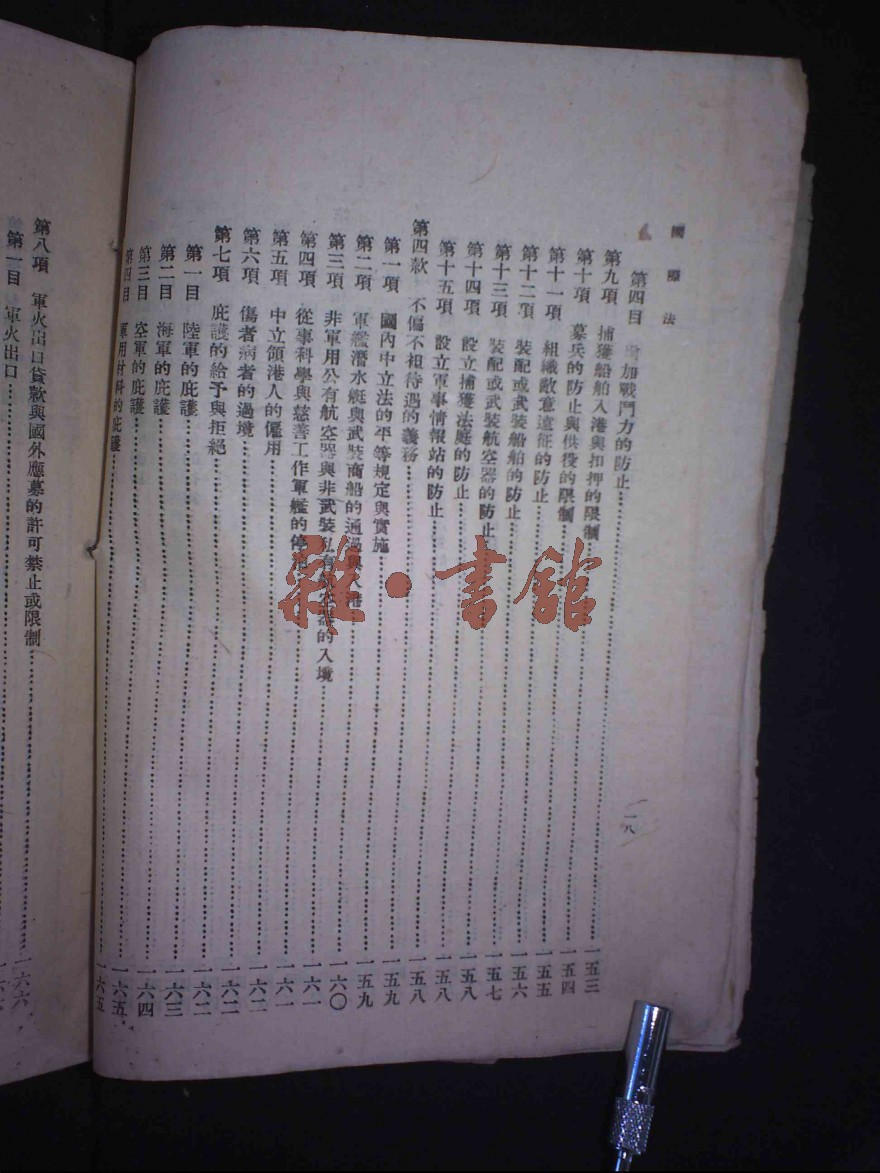 國際法
一八
第四目 加戰鬥力的防止……一五三
第九項 捕獲船舶入港與扣押的限制……一五四
第十項 募兵的防止與供役的限制……一五五
第十一項 組織敵意遠征的防止……一五六
第十二項 裝配或武裝船舶的防止……一五七
第十三項 裝配或武裝航空器的防止……一五八
第十四項 設立捕獲法庭的防止……一五八
第十五項 設立軍事情報站的防止……一五八
第四款 不偏不袒待遇的義務……一五九
第一項 國內中立法的平等規定與實施……一五九
第二項 軍艦潛水艇與武裝商船的通過與入港……一六〇
第三項 非軍用公有航空器與非武裝私有航空器的入境……一六一
第四項 從事科學與慈善工作軍艦的停泊……一六一
第五項 中立領港人的僱用……一六二
第六項 傷者病者的過境……一六二
第七項 庇護的給予與拒絕……一六二
第一目 陸軍的庇護……一六三
第二目 海軍的庇護……一六四
第三目 空軍的庇護……一六五
第四目 軍用材料的庇護……一六五
第八項 軍火出口貸款與國外應募的許可禁止或限制……一六六
第一目 軍火出口……
雜·書館